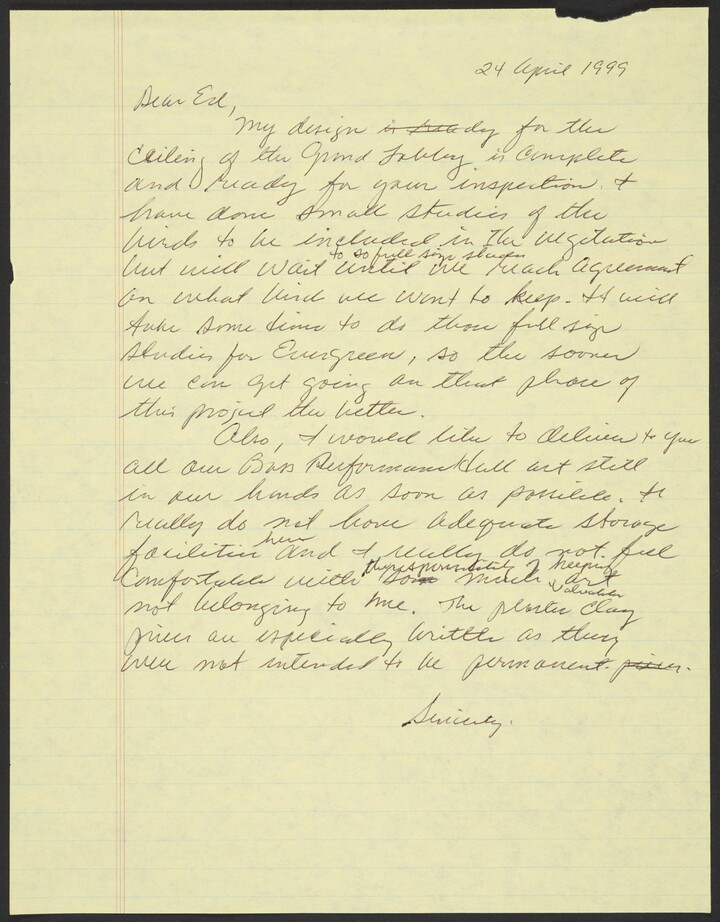 24 April 1999
Dear Ed,
My design is ready for the
ceiling of the Grand Lobby is complete
and ready for your inspection. I
have done small studies of the
birds to be included in the vegitation
to do full size studies
but will wait until we reach agreement
on what bird we want to keep. It will
take some time to do those full size
studies for Evergreen, so the sooner
we can get going on that phase of
this project the better.
Also, I would like to deliver to you
all our Bass Performance Hall art still
in our hands as soon as possible. We
really do not have adequate storage
here
facilities and I really do not feel
the responsibility of keeping
comfortable with so much art
valuable
not belonging to me. The plaster clay
pieces are especially brittle as they
were not intended to be permanent pieces.
Sincerely.